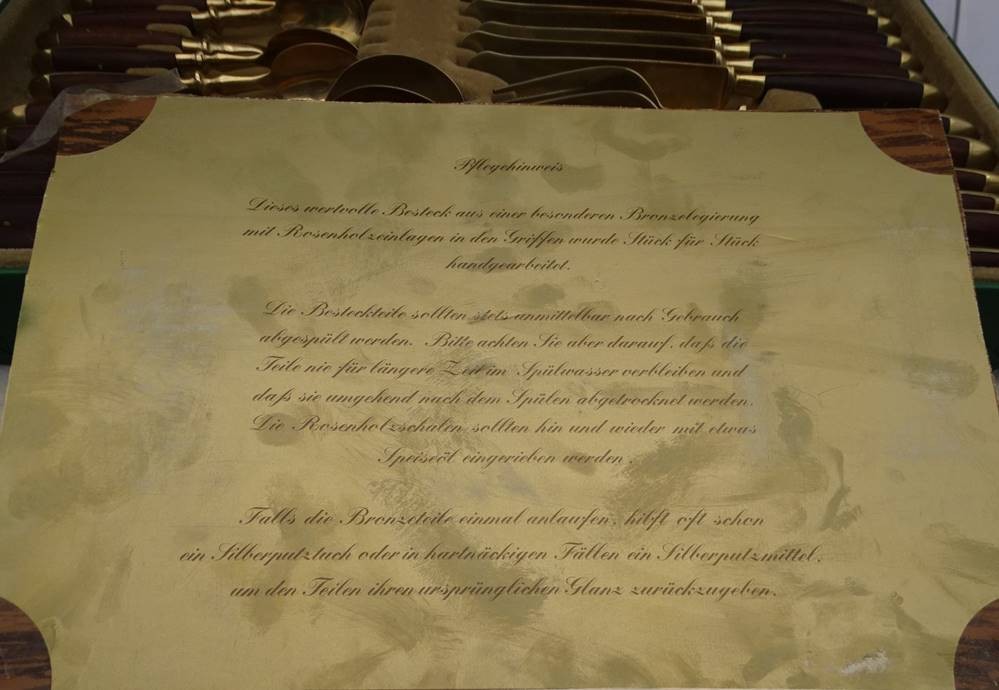 Pflegehinweis
Dieses wertvolle Besteck aus einer besonderen Bronzelegierung
mit Rosenholzeinlagen in den Griffen wurde Stück für Stück
handgearbeitet.
Die Besteckteile sollten stets unmittelbar nach Gebrauch
abgespült werden. Bitte achten Sie aber darauf, daß die
Teile nie für längere Zeit im Spülwasser verbleiben und
daß sie umgehend nach dem Spülen abgetrocknet werden.
Die Rosenholzschalen sollten hin und wieder mit etwas
Speiseöl eingerieben werden.
Falls die Bronzeteile einmal anlaufen, hilft oft schon
ein Silberputztuch oder in hartnäckigen Fällen ein Silberputzmittel,
um den Teilen ihren ursprünglichen Glanz zurückzugeben.